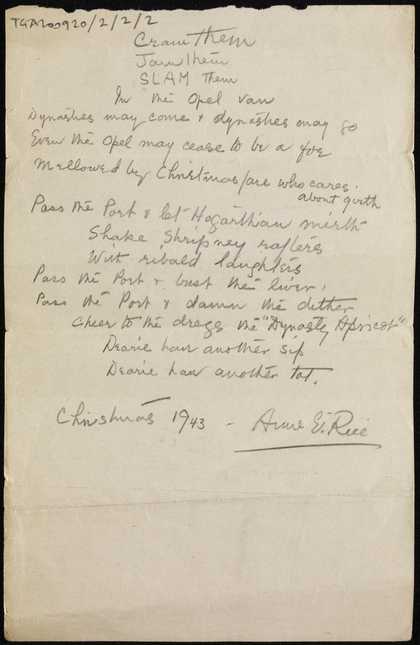 TGA200920/2/2/2
Cram Them
Jam them
SLAM Them
In the Opel van
Dynasties may come & dynasties may go
Even the Opel may cease to be a
Mellowed by Christmas fare who cares
about girth
Pass the Port & let Hogarthian mirth
Shake Shripney rafters
With ribald laughters
Pass the Port & bust the liver,
Pass the Port & damn the dither
Cheer to the dregs the "Dynasty Apricot"
Dearie have another sip
Dearie have another tot.
Christmas 1943 - Anne E. Rice